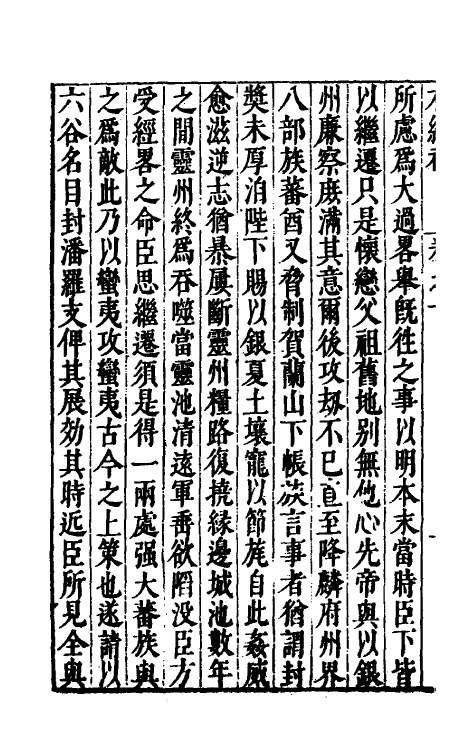 所慮爲大過畧舉旣徃之事以明本末當時臣下皆
以繼遷只是懷戀父祖舊地别無他心先帝與以銀
州廉察庻滿其意爾後攻刼不已直至降麟府州界
八部族蕃酋又脅制賀蘭山下帳族言事者猶謂封
奬未厚洎陛下賜以銀夏土壤寵以節旄自此姦威
愈滋逆志猶暴屢斷靈州糧路復撓緣邊城池數年
之間靈州終爲吞噬當靈池清遠軍垂欲䧟没臣方
受經畧之命臣思繼遷須是得一兩處强大蕃族與
之爲敵此乃以蠻夷攻蠻夷古今之上策也遂請以
六谷名目封潘羅支俾其展効其時近臣所見全與